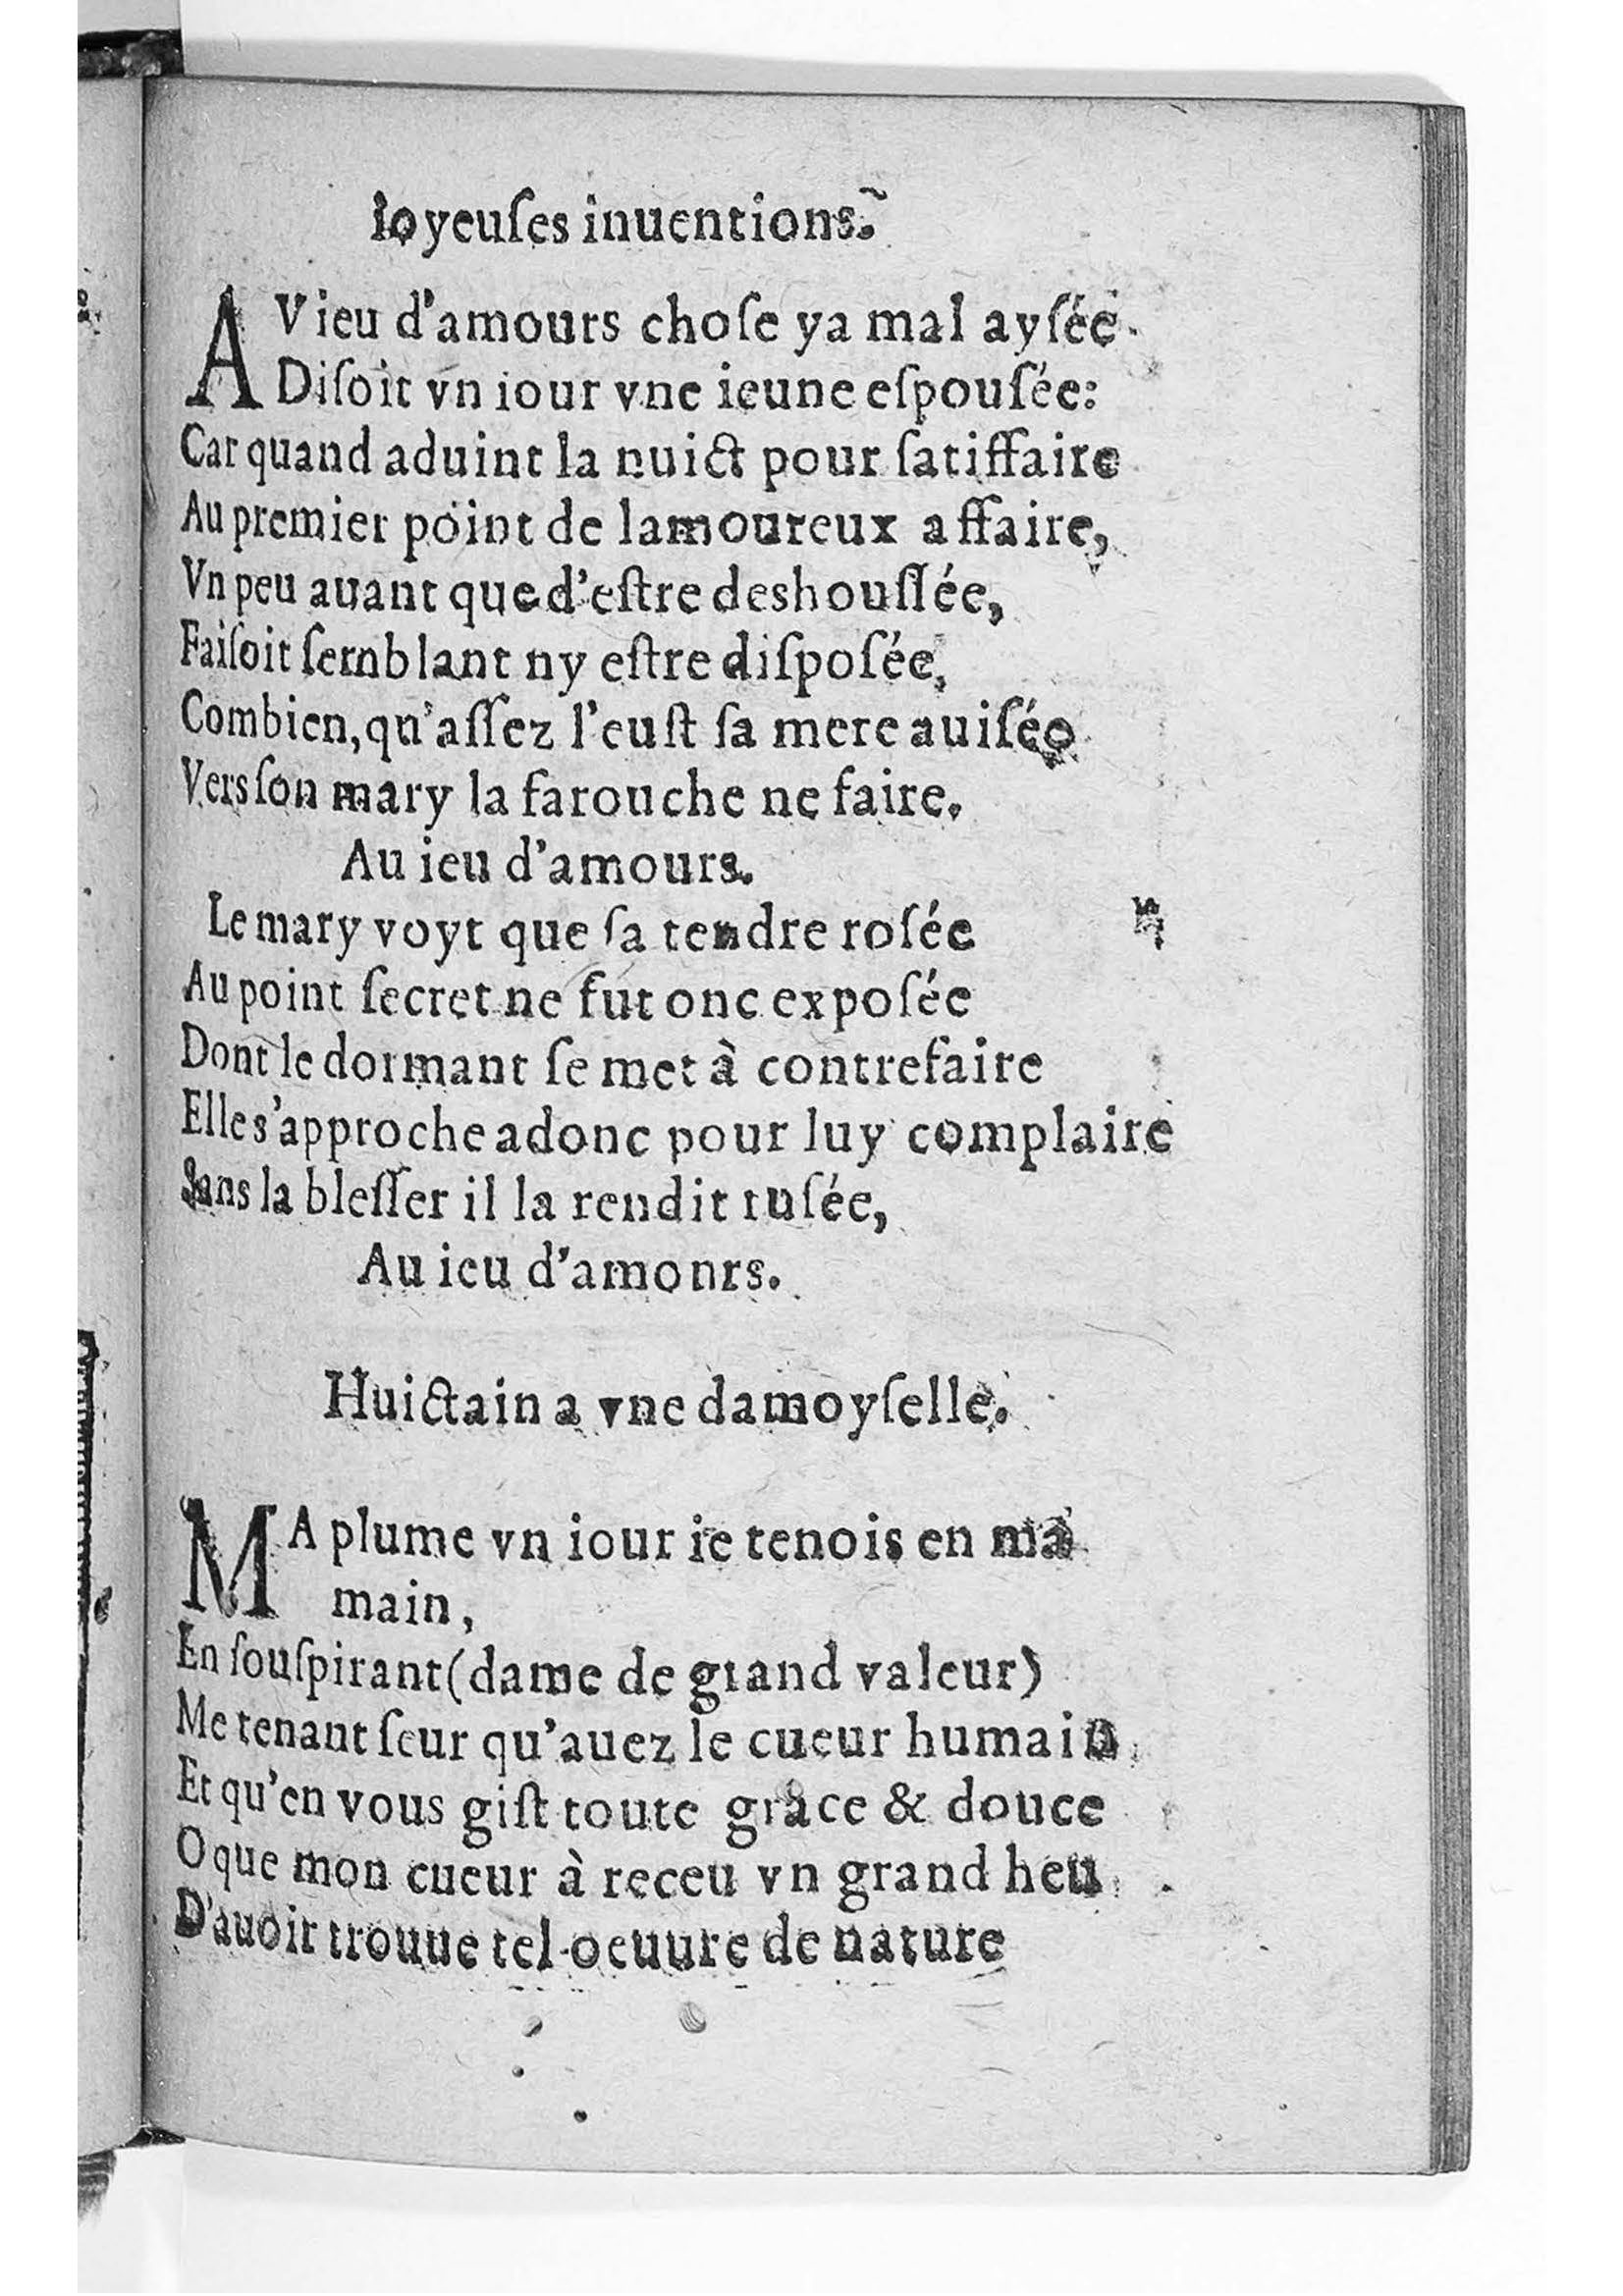 Ioyeuſes inuentions.
AV ieu d'amours choſe ya mal ayſée
Diſoit vn iour vne ieune eſpouſée:
Car quand aduint la nuict pour ſatiffaire
Au premier point de lamoureux affaire,
Vn peu auant que d'eſtre deshouſſée,
Faiſoit ſemblant ny eſtre diſpoſée,
Combien, qu'aſſez l'euſt ſa mere auiſée
Vers ſon mary la farouche ne faire.
Au ieu d'amours.
Le mary voyt que ſa tendre roſée
Au point ſecret ne fut onc expoſée
Dont le dormant ſe met à contrefaire
Elle s'approche adonc pour luy complaire
Sans la bleſſer il la rendit ruſée,
Au ieu d'amonrs.
Huictain a vne damoyſelle.
MA plume vn iour ie tenois en ma
main,
En ſouſpirant (dame de grand valeur)
Me tenant ſeur qu'auez le cueur humain
Et qu'en vous giſt toute grace & douce
O que mon cueur à receu vn grand heu
D'auoir trouue tel oeuure de nature